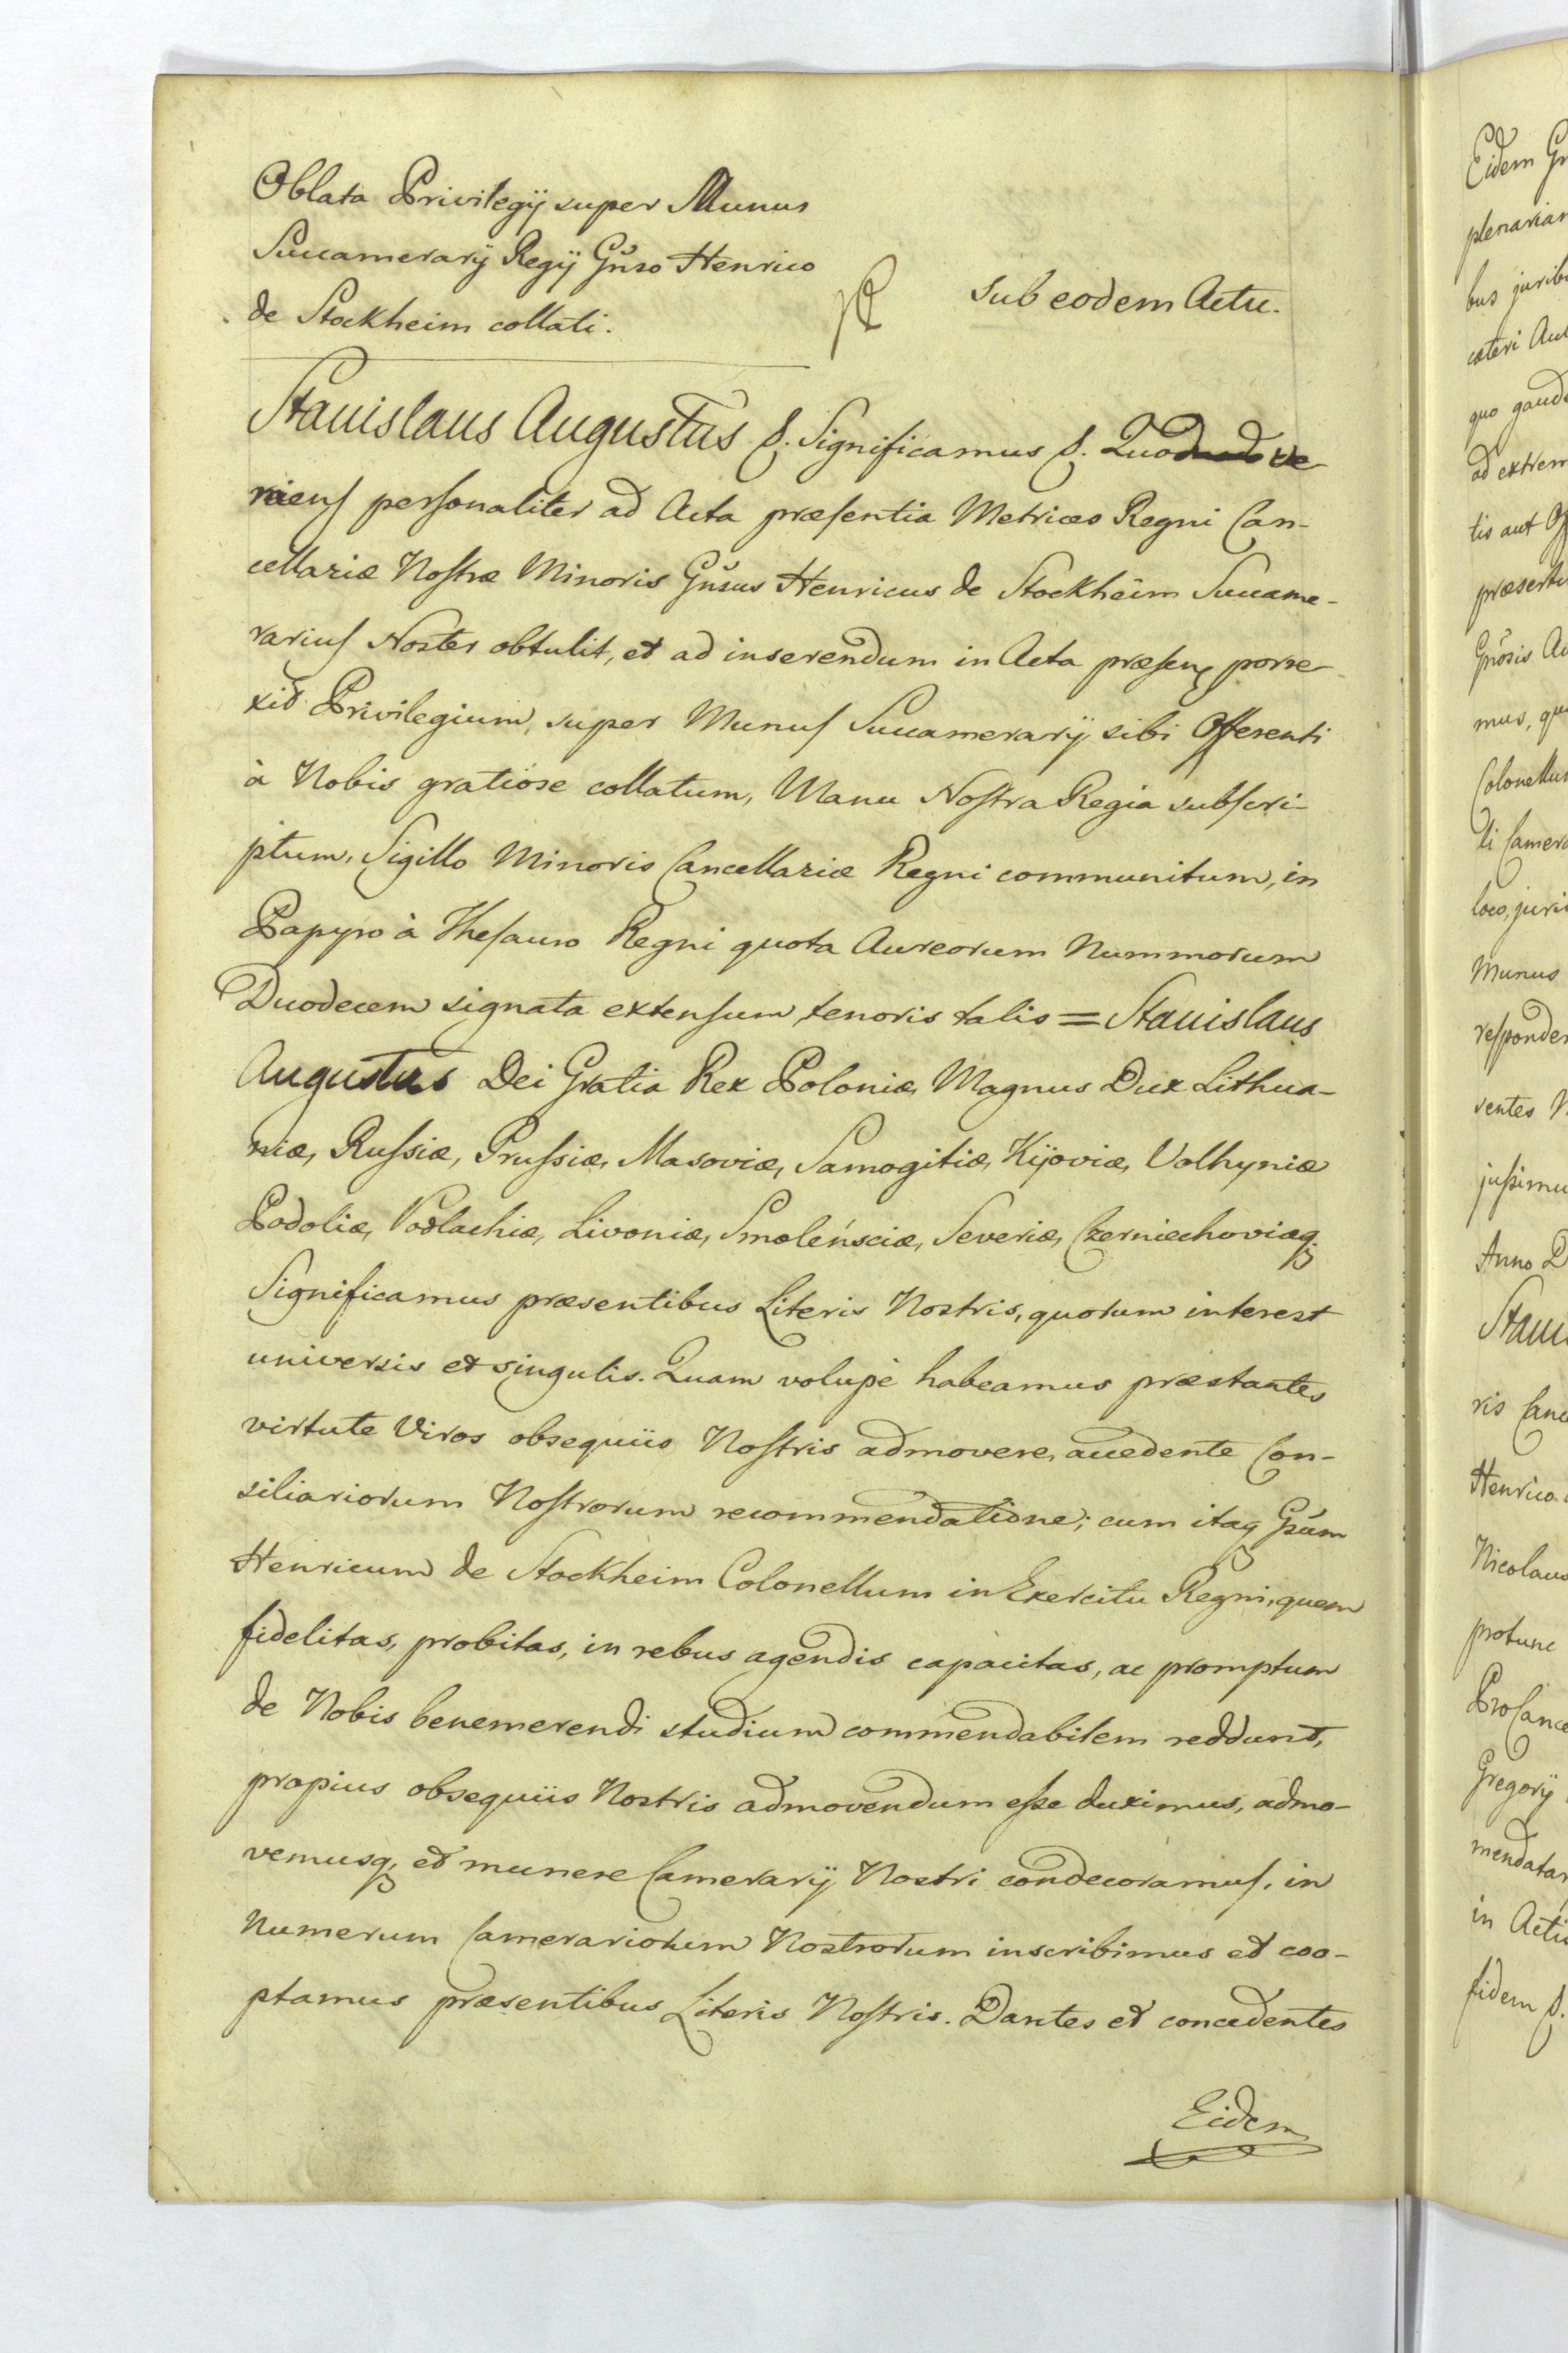 Oblata Privilegij super Munus
Succamerarij Regij Gñso Henrico
de Stockheim collati.
Sub eodem Actu.
Stanislaus Augustus &. Significamus &. Quod ve
niens personaliter ad Acta præsentia Metrices Regni Can-
cellariæ Nostræ Minoris Gñsus Henricus de Stockheim Succame-
rarius Noster obtulit, et ad inserendum in Acta præsens porre-
xit Privilegium, super Munus Succamerarij sibi Offerenti
à Nobis gratiose collatum, Manu Nostra Regia subscri-
ptum, Sigillo Minoris Cancellariæ Regni communitum, in
Papyro à Thesauro Regni quota Aureorum Nummorum
Duodecem signata extensum, tenoris talis = Stanislaus
Augustus Dei Gratia Rex Poloniæ, Magnus Dux Lithua-
niæ, Russiæ, Prussiæ, Masoviæ, Samogitiæ, Kijoviæ, Volhyniæ
Podoliæ, Podlachiæ, Livoniæ, Smoleńsciæ, Severiæ, Czerniechoviæq;
Significamus præsentibus Literis Nostris, quorum interest
universis et singulis. Quam volupè habeamus præstantes
virtute Viros obsequiis Nostris admovere, accedente Con-
siliariorum Nostrorum recommendatione; cum itaq; Gsum
Henricum de Stockheim Colonellum in Exercitu Regni, quem
fidelitas, probitas, in rebus agendis capacitas, ac promptum
de Nobis benemerendi studium commendabilem reddunt,
propius obsequiis Nostris admovendum esse duximus, admo-
vemusq; et munere Camerarij Nostri condecoramus, in
Numerum Camerariorum Nostrorum inscribimus et coo-
ptamus præsentibus Literis Nostris. Dantes et concedentes
Eidem
Eidem
plenariam
bus
ad extrem
tis aut
mus,
Colonellum
loco,
Munus
ventes
Anno
ris Canc
Henrico
Nicolaus
protunc
ProCance
Gregorij
mendatar
in Actis
fidem &.